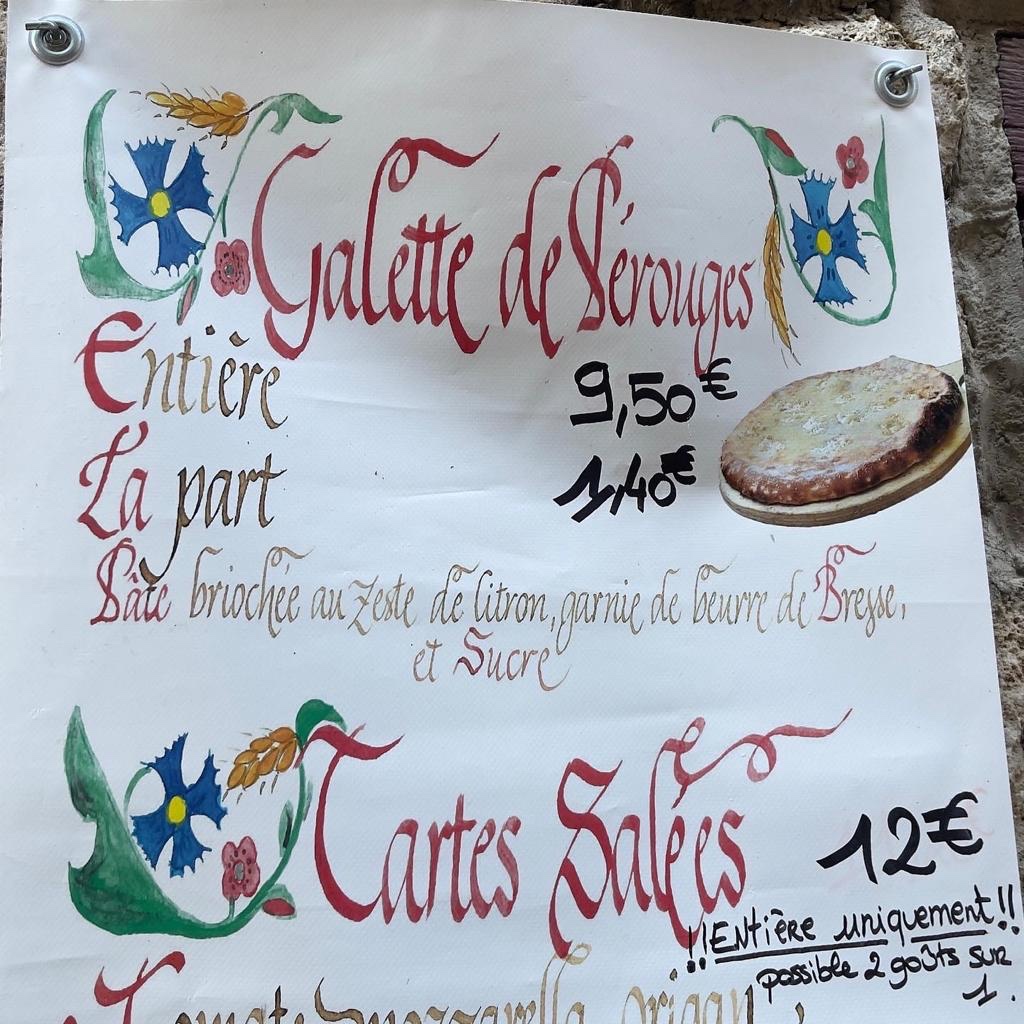 Galette de Pérouges
Entière 9,50€
La part 1,40€
Pâte briochée au zeste de litron, garnie de beurre de Bresse,
et Sucre
Tartes Salées 12€
!! ENtière uniquement !!
possible 2 goûts sur
1.
Tomate mozzarella origan